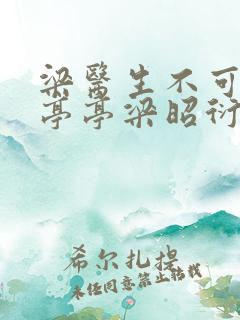 梁醫生不可
亭亭梁昭衍
希尔扎提
未经同意禁止转载